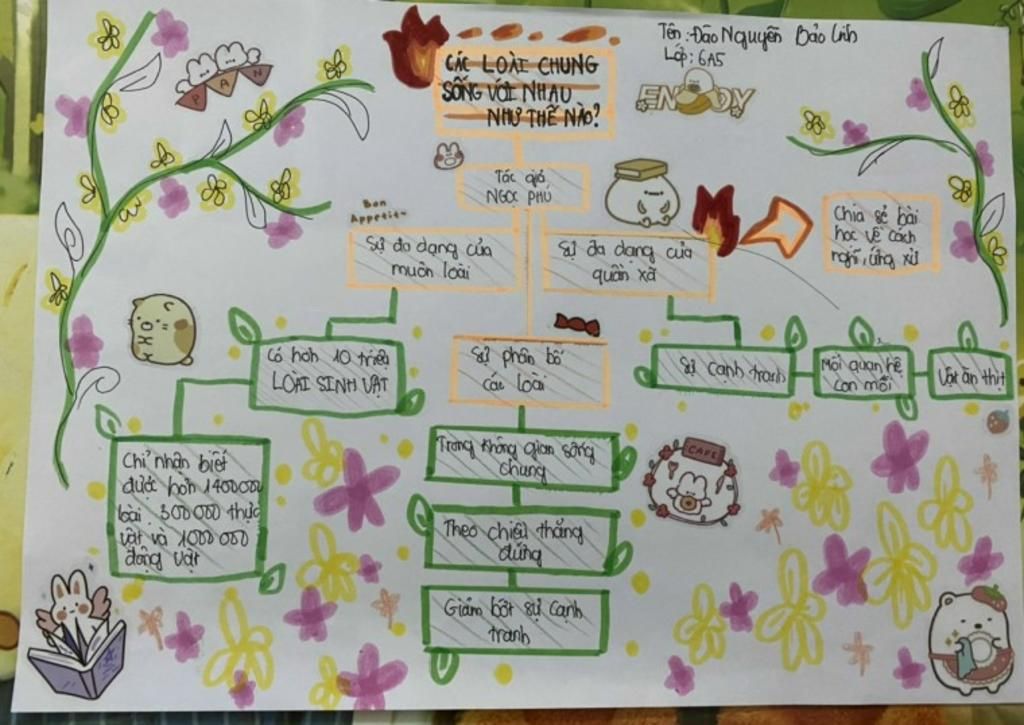 Tên: Đào Nguyễn Bảo Linh
Lớp: 6A5
CÁC LOÀI CHUNG
SỐNG VỚI NHAU
NHƯ THẾ NÀO?
PAN
ENJOY
Tác giả
NGỌC PHÚ
Bon
Appetit~
Sự đa dạng của
muôn loài
Sự đa dạng của
quần xã
Chia sẻ bài
học về cách
nghĩ, ứng xử
Có hơn 10 triệu
LOÀI SINH VẬT
Sự phân bố
các loài
Sự cạnh tranh
Mối quan hệ
con mồi
Vật ăn thịt
Chỉ nhận biết
được hơn 1400000
loài 300000 thực
vật và 1000000
động vật
Trong không gian sống
chung
CAFE
Theo chiều thẳng
đứng
Giảm bớt sự cạnh
tranh